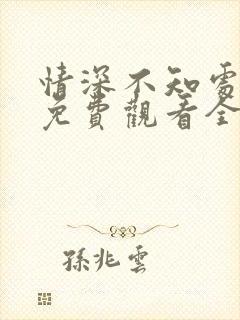 情深不知處
免費觀看全
孫兆雲